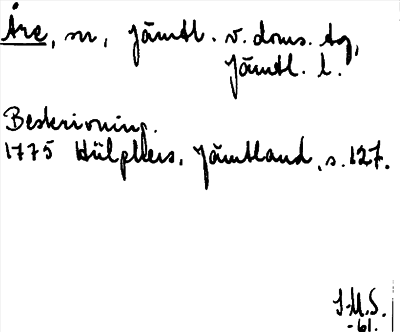 Åre, sn, Jämtl. v. doms. tg,
Jämtl. l.
Beskrivning.
1775 Hülphers, Jämtland, s. 127.
J.M.S.
-61.